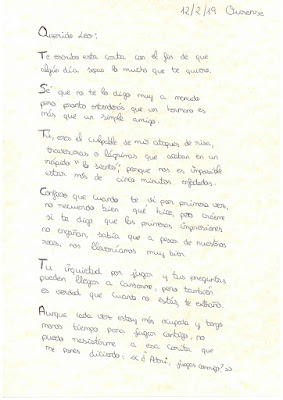 12/2/19 Ourense
Querido Leo:
Te escribo esta carta con el fin de que
algún día sepas lo mucho que te quiero.
Sé que no te lo digo muy a menudo
pero pronto entenderás que un hermano es
más que un simple amigo.
Tú, eres el culpable de mis ataques de risa,
travesuras o lágrimas que acaban en un
rápido "lo siento"; porque nos es imposible
estar más de cinco minutos enfadados.
Confieso que cuando te vi por primera vez,
no recuerdo bien qué hice, pero créeme
si te digo que las primeras impresiones
no engañan, sabía que a pesar de nuestros
roces, nos llevaríamos muy bien.
Tu inquietud por jugar y tus preguntas
pueden llegar a cansarme, pero también
es verdad que cuando no estás, te extraño.
Aunque cada vez estoy más ocupada y tengo
menos tiempo para jugar contigo, no
puedo resistirme a esa carita que
me pones diciendo: «¿ juegas conmigo?»